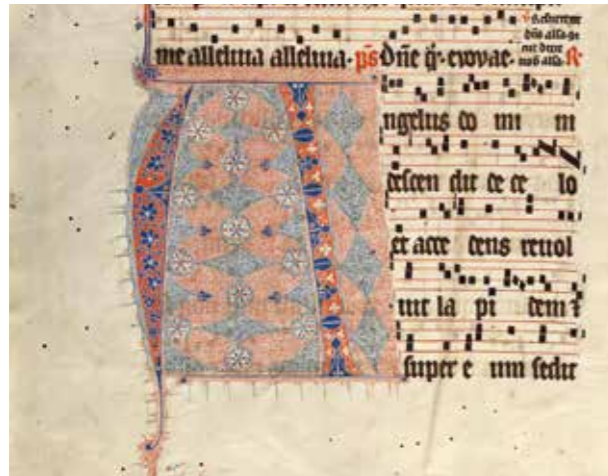 me alleluia alleluia. ps Dñe q̃. evovae.
R
A
ngelus do mi ni
descen dit de ce lo
et acce dens revol
vit la pi dem ⁊
super e um sedit